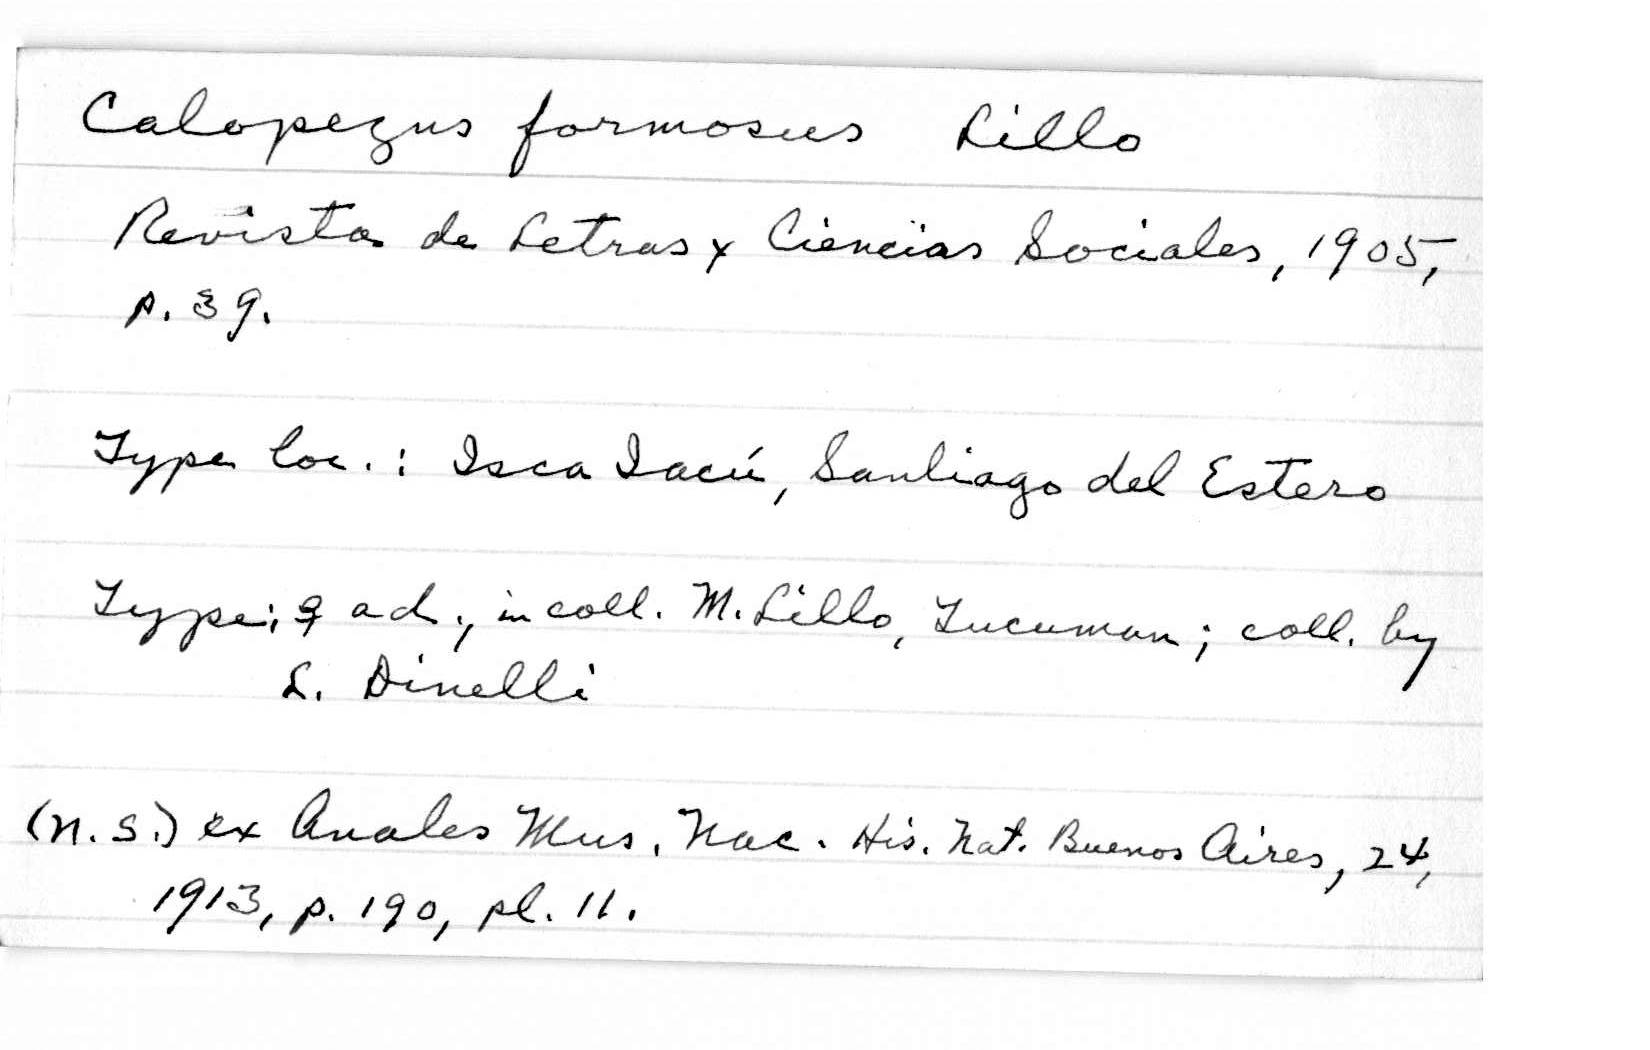 Calopezus formosus Lillo
Revista de Letras y Ciencias Sociales, 1905,
p. 39.
Type loc.: Isca Iacú, Santiago del Estero
Type: ♀ ad., in coll. M. Lillo, Tucuman; coll. by
L. Dinelli
(n.s.) ex Anales Mus. Nac. His. Nat. Buenos Aires, 24,
1913, p. 190, pl. 11.